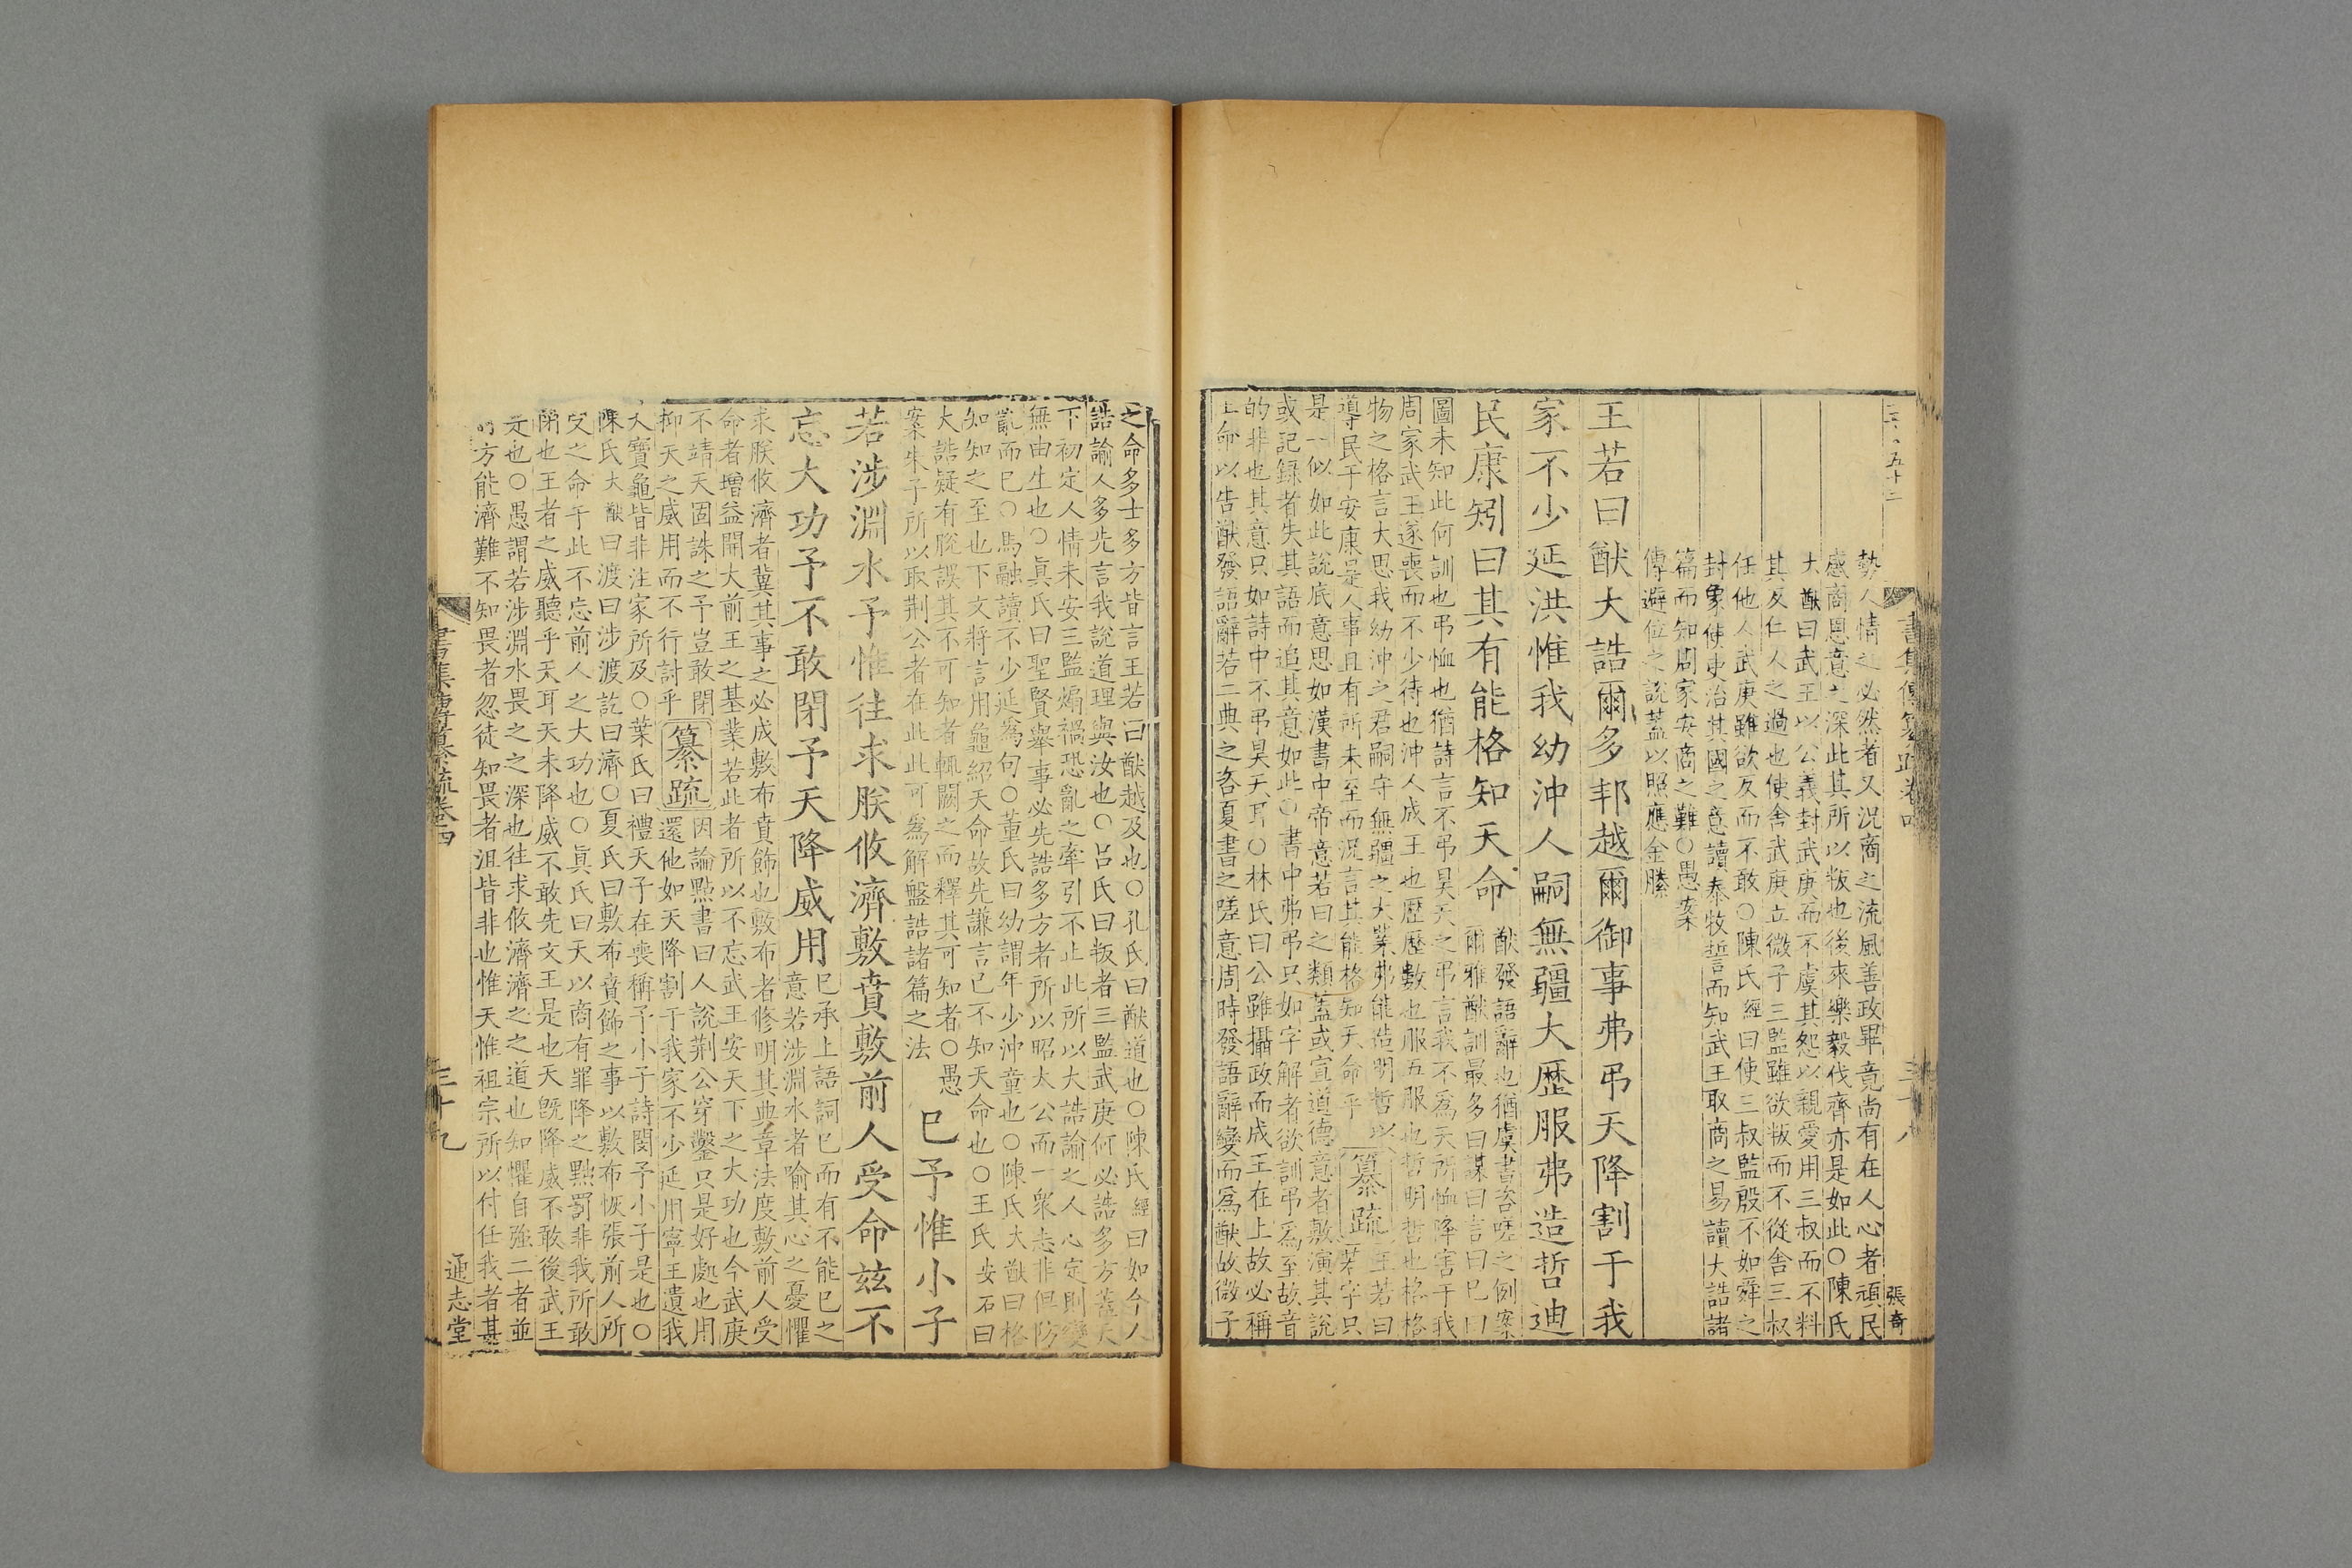 書集傳纂疏卷四
張奇
勢人情之必然者又況商之流風善政畢竟尚有在人心者頑民
感商恩意之深此其所以叛也後來樂毅伐齊亦是如此○陳氏
大猷曰武王以公義封武庚而不虞其怨以親愛用三叔而不料
其反仁人之過也使舍武庚立微子三監雖欲叛而不從舍三叔
任他人武庚雖欲反而不敢○陳氏經曰使三叔監殷不如舜之
封象使吏治其國之意讀泰牧誓言而知武王取商之易讀大誥諸
篇而知周家安商之難○愚案
傳避位之說蓋以照應金縢
王若曰猷大誥爾多邦越爾御事弗弔天降割于我
家不少延洪惟我幼沖人嗣無疆大歷服弗造哲迪
民康矧曰其有能格知天命
猷發語辭也猶虞書咨嗟之例案
爾雅猷訓最多曰謀曰言曰巳曰
圖未知此何訓也弔恤也猶詩言不弔昊天之弔言我不為天所恤降害于我
周家武王遂喪而不少待也沖人成王也歷歷數也服五服也哲明哲也格格
物之格言大思我幼沖之君嗣守無疆之大業弗能造明哲以
導民于安康是人事且有所未至而況言其能格知天命乎
纂疏
王若曰
若字只
是一似如此說底意思如漢書中帝意若曰之類蓋或宣道德意者敷演其說
或記録者失其語而追其意如此○書中弗弔只如字解者欲訓弔為至故音
的非也其意只如詩中不弔昊天耳○林氏曰公雖攝政而成王在上故必稱
王命以告猷發語辭若二典之咨夏書之嗟意周時發語辭變而為猷故微子
之命多士多方皆言王若曰猷越及也○孔氏曰猷道也○陳氏經曰如今人
誥諭人多先言我說道理與汝也○呂氏曰叛者三監武庚何必誥多方蓋天
下初定人情未安三監煽禍恐亂之牽引不止此所以大誥諭之人心定則變
無由生也○真氏曰聖賢舉事必先誥多方者所以昭太公而一衆志非但防
亂而巳○馬融讀不少延為句○董氏曰幼謂年少沖童也○陳氏大猷曰格
知知之至也下文將言用龜紹天命故先謙言巳不知天命也○王氏安石曰
大誥疑有脫誤其不可知者輒闕之而釋其可知者○愚
案朱子所以取荆公者在此此可為解盤誥諸篇之法
巳予惟小子
若涉淵水予惟往求朕攸濟敷賁敷前人受命茲不
忘大功予不敢閉予天降威用
巳承上語詞巳而有不能巳之
意若涉淵水者喻其心之憂懼
求朕攸濟者冀其事之必成敷布賁飾也敷布者修明其典章法度敷前人受
命者増益開大前王之基業若此者所以不忘武王安天下之大功也今武庚
不靖天固誅之予豈敢閉
抑天之威用而不行討乎
纂疏
因論點書曰人說荆公穿鑿只是好處也用
還他如天降割于我家不少延用寧王遺我
大寶龜皆非注家所及○葉氏曰禮天子在喪稱予小子詩閔予小子是也○
陳氏大猷曰渡曰涉渡訖曰濟○夏氏曰敷布賁飾之事以敷布恢張前人所
受之命于此不忘前人之大功也○真氏曰天以商有罪降之黜罰非我所敢
閉也王者之威聽乎天耳天未降威不敢先文王是也天既降威不敢後武王
是也○愚謂若涉淵水畏之之深也往求攸濟濟之之道也知懼自強二者並
方能濟難不知畏者忽徒知畏者沮皆非也惟天惟祖宗所以付任我者甚
書集傳纂疏卷四
三十九
通志堂